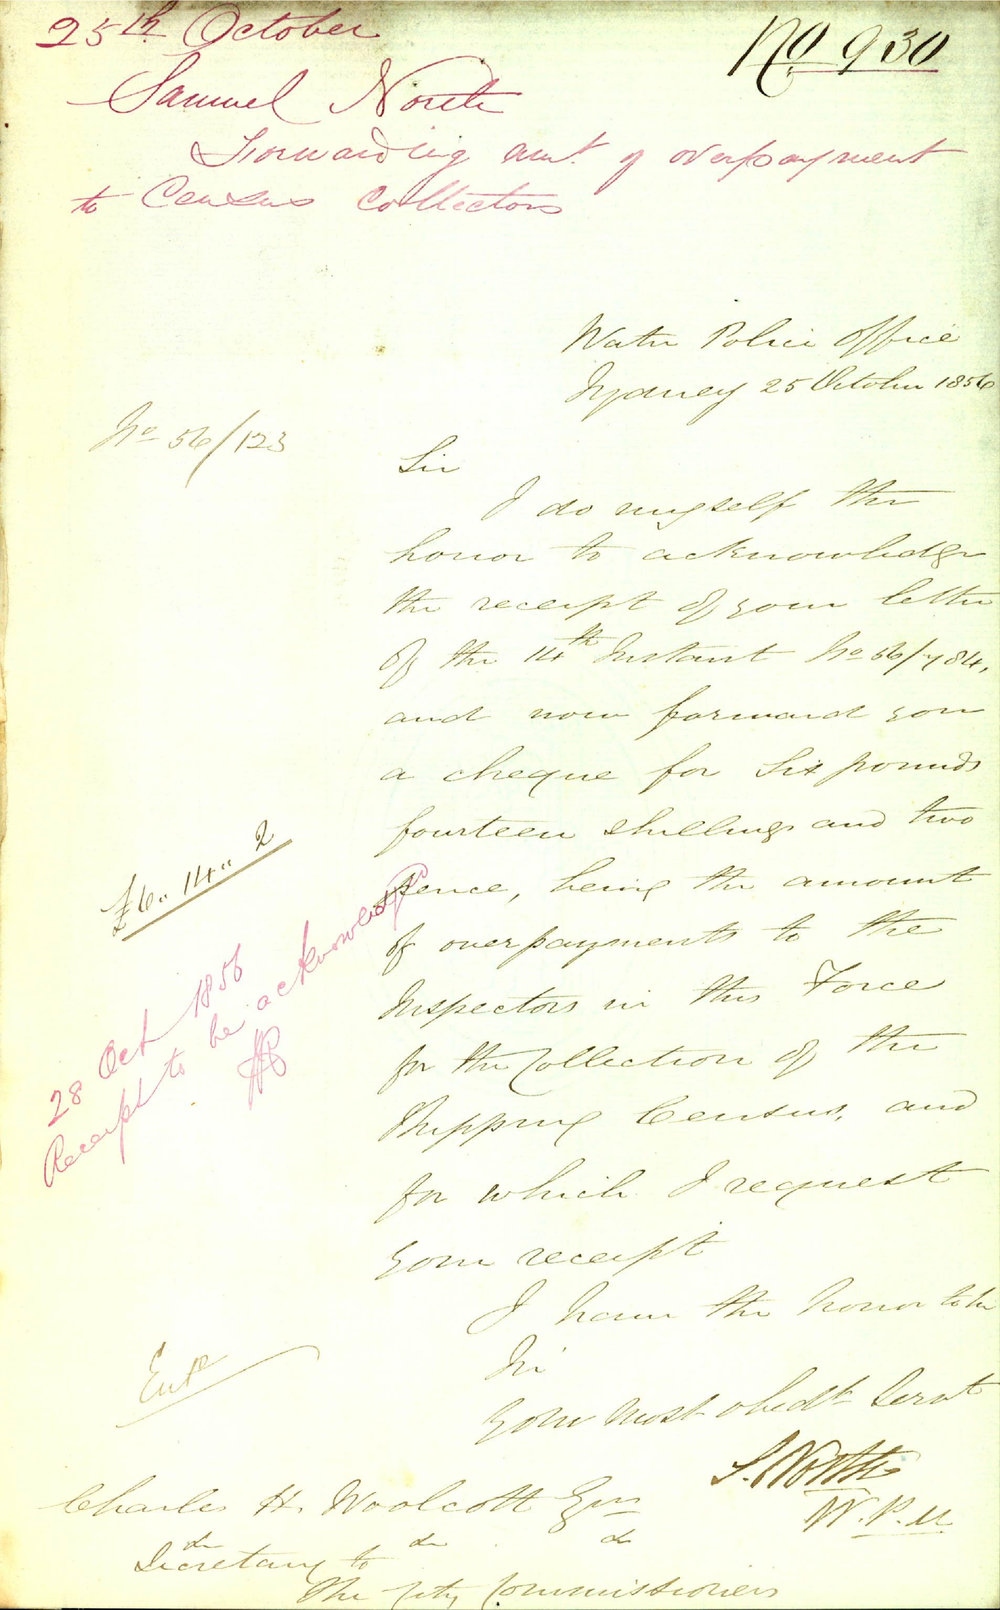 25th October
No. 930
Samuel North
Forwarding amt. of overpayment
to Census Collectors
Water Police Office
Sydney 25 October 1856
No 56/123
Sir
I do myself the
honor to acknowledge
the receipt of your letter
of the 14th Instant No 56/784,
and now forward you
a cheque for Six pounds
fourteen shillings and two
pence, being the amount
of overpayments to the
Inspectors in this Force
for the Collection of the
Shipping Census, and
for which I request
your receipt
I have the honor to be
Sir
Your most obedt Servt
S. North
W.P.M.
£6.. 14.. 2
28 Oct 1856
Receipt to be acknowledged
Entd
Charles H. Woolcott Esqr
do do do
Secretary to
The City Commissioners